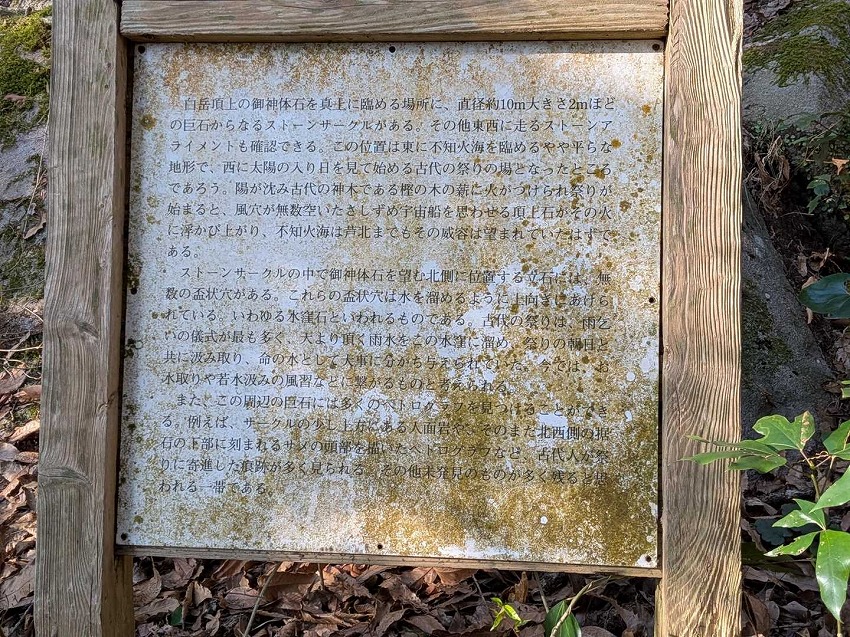 白岳頂上の御神体石を真上に臨める場所に、直径約10m大きさ2mほど
の巨石からなるストーンサークルがある。その他東西に走るストーンア
ライメントも確認できる。この位置は東に不知火海を臨めるやや平らな
地形で、西に太陽の入り日を見て始める古代の祭りの場となったところ
であろう。陽が沈み古代の神木である樫の木の薪に火がつけられ祭りが
始まると、風穴が無数空いたさしずめ宇宙船を思わせる頂上石がその火
に浮かび上がり、不知火海は芦北までもその威容は望まれていたはずで
ある。
ストーンサークルの中で御神体石を望む北側に位置する立石には、無
数の盃状穴がある。これらの盃状穴は水を溜めるように上向きにあけら
れている。いわゆる氷窪石といわれるものである。古代の祭りは、雨乞
いの儀式が最も多く、天より頂く雨水をこの水窪に溜め、祭りの朝日と
共に汲み取り、命の水として大事に分かち与えられていた。今では、お
水取りや若水汲みの風習などに繋がるものと考えられる。
また、この周辺の巨石には多くのペトログラフを見つけることができ
る。例えば、サークルの少し上方にある人面岩や、そのまた北西側の据
石の上部に刻まれるサメの頭部を描いたペトログラフなど、古代人が祭
りに寄進した痕跡が多く見られる。その他未発見のものが多く残ると思
われる一帯である。